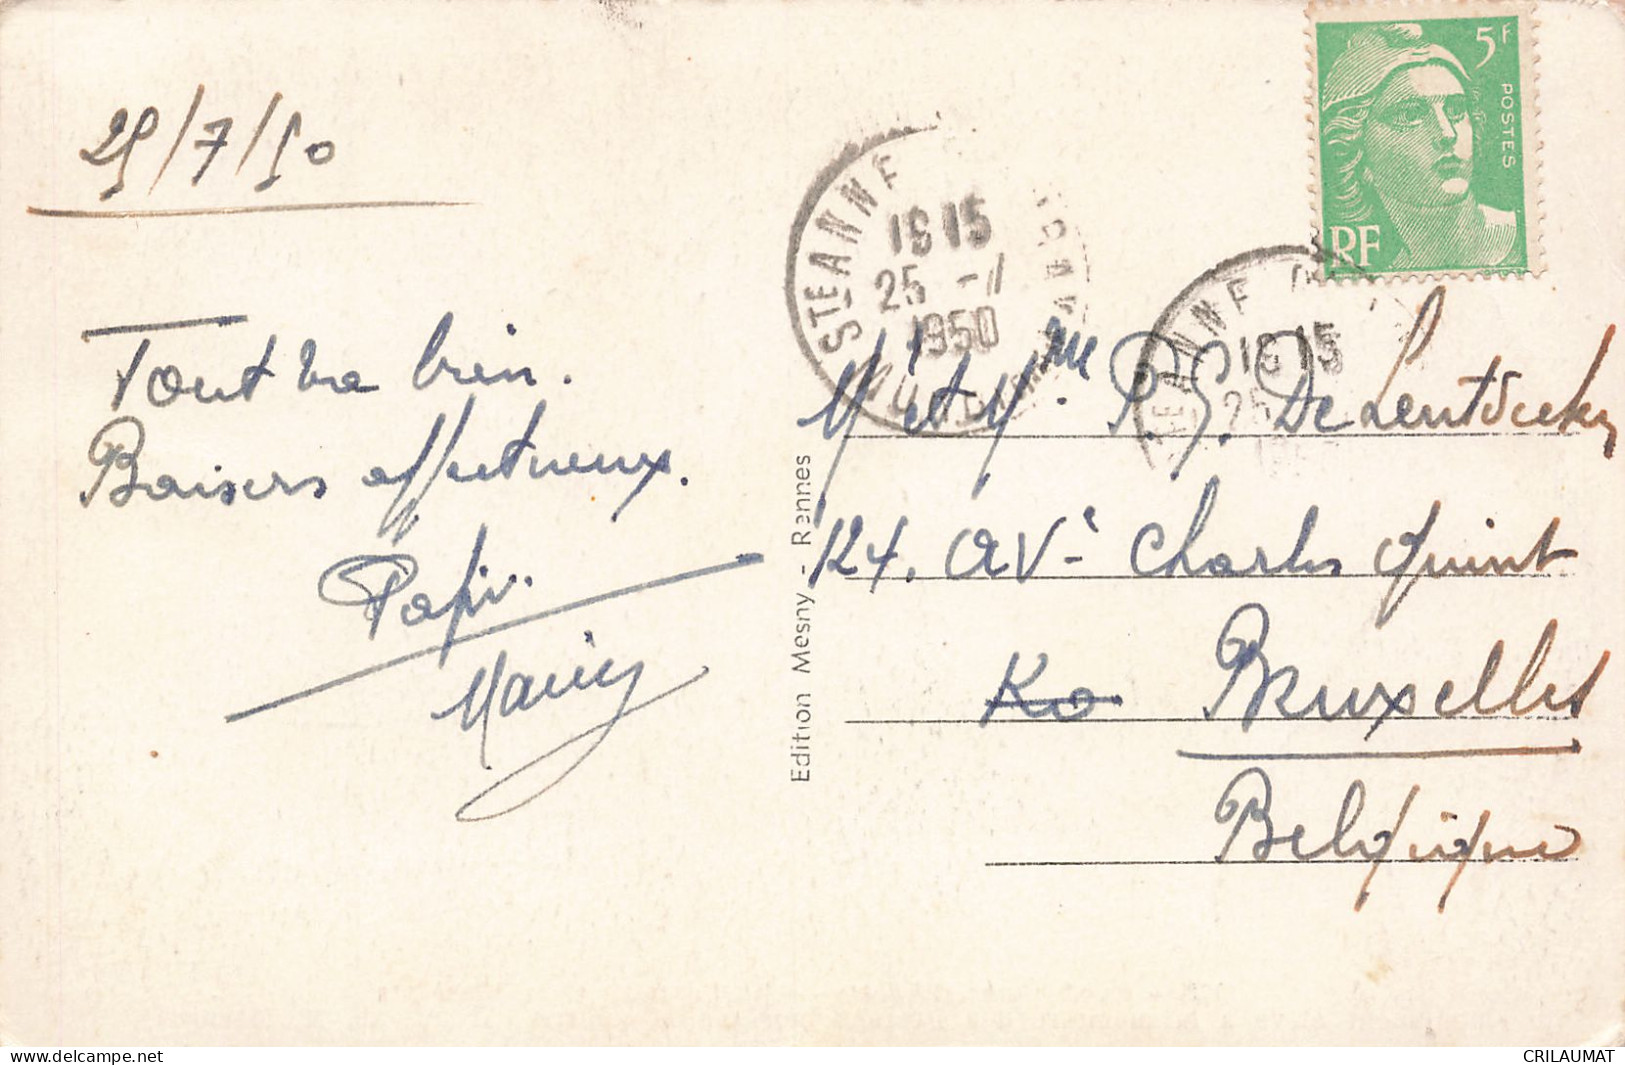 25/7/50
Tout va bien.
Baisers affectueux.
Papi.
Edition Mesny - Rennes
STE ANNE
18 15
25 -
1950
STE ANNE
18 15
25
5F
POSTES
RF
Mr et Mme P. De
124, Ave Charles Quint
Ko Bruxelles
Belgique
www.delcampe.net
CRILAUMAT